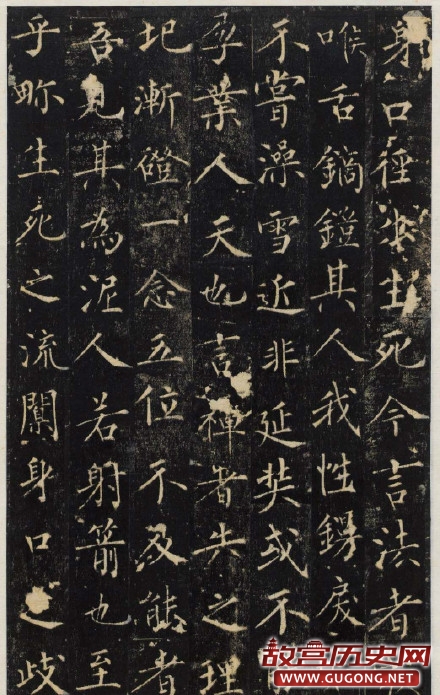 身口徑生死今言法者
喉舌鏑鎧其人我性戾
不嘗澡雪近非延或不
孕業人天也言禪者失之理
圯漸磴一念五位不及能者
吾見其為泥人若射箭也至
乎畛生死之流闡身口之歧
故宫历史网
WWW.GUGONG.NET